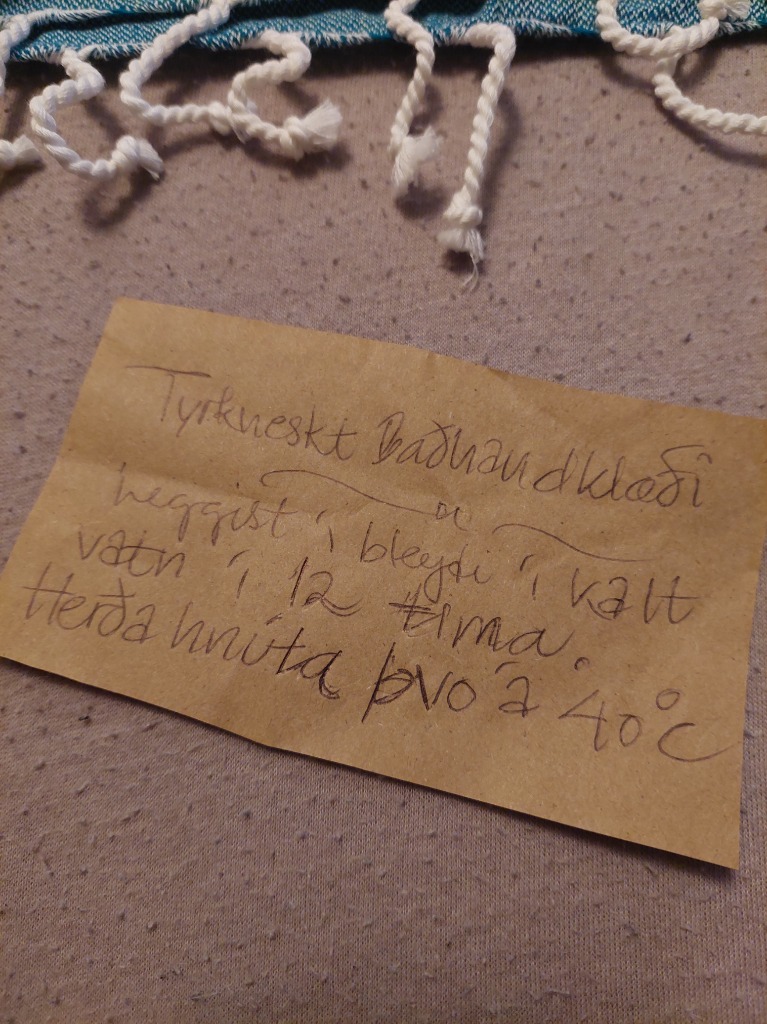 Tyrkneskt Baðhandklæði
heggist í bleyti í kalt
vatn í 12 tíma.
Herða hnúta þvo á 40°C